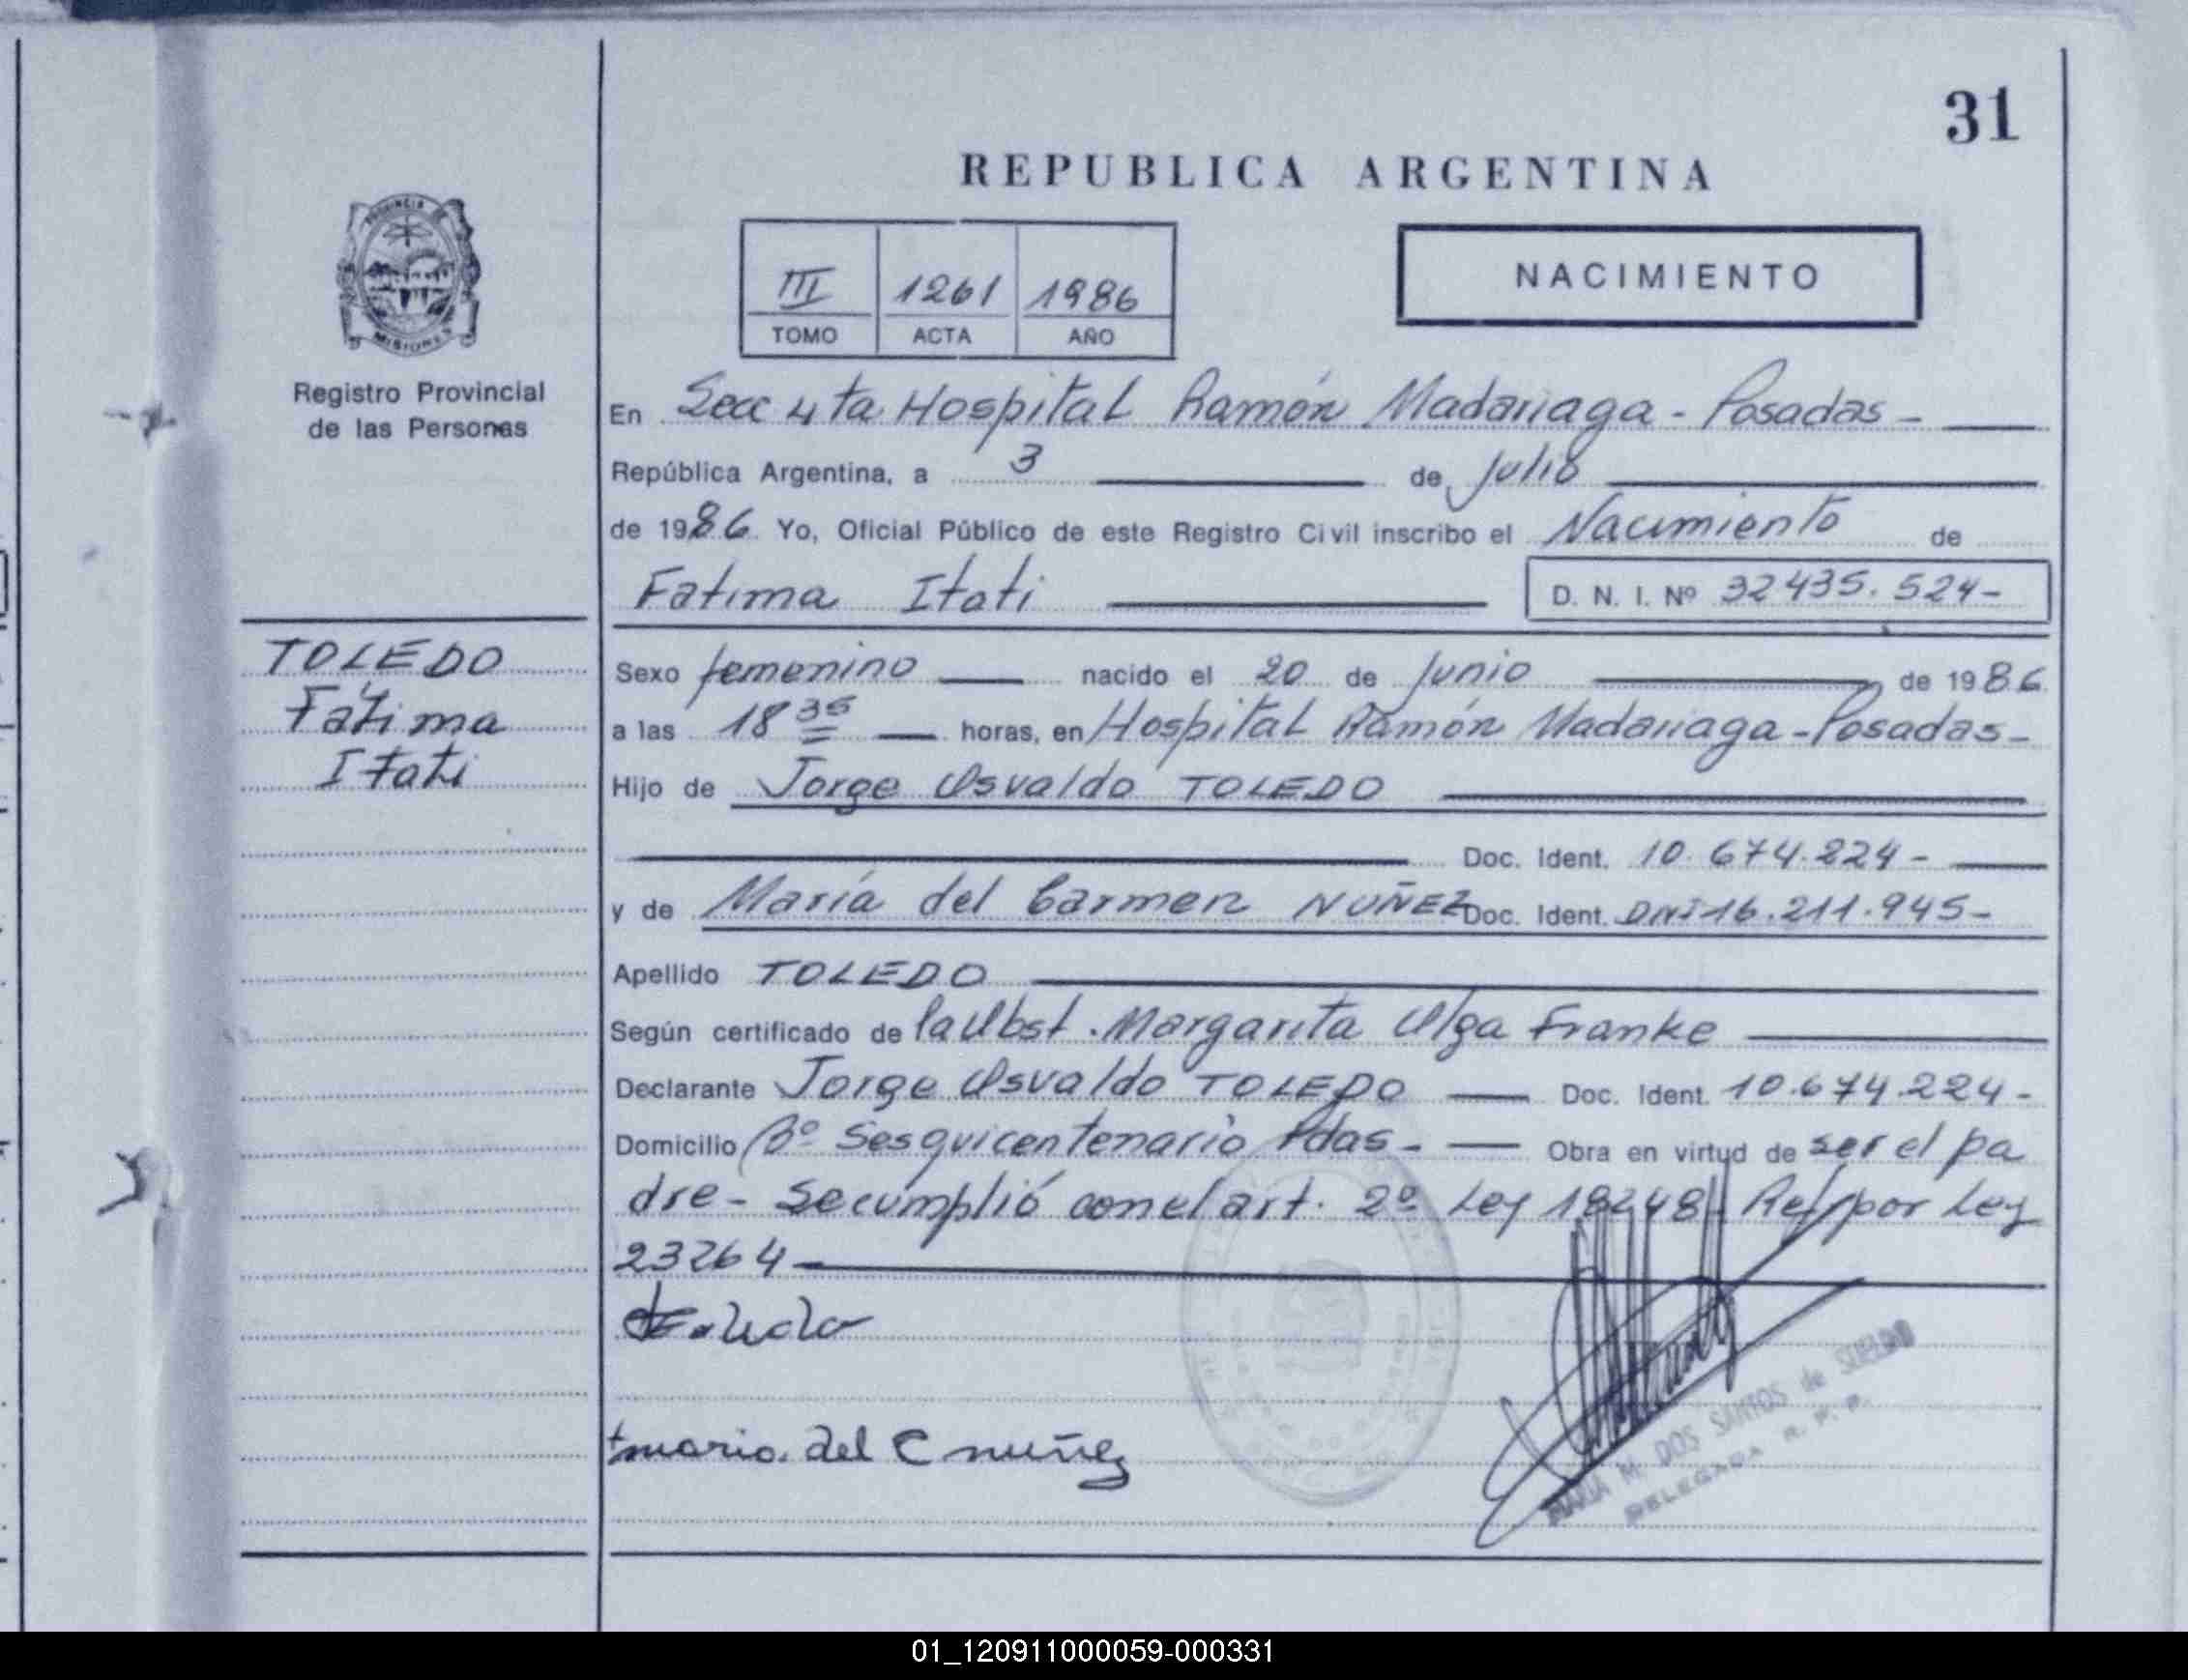 31
REPUBLICA ARGENTINA
PROVINCIA DE
MISIONES
III 1261 1986
TOMO ACTA AÑO
NACIMIENTO
Registro Provincial
de las Personas
En Secc 4ta Hospital Ramón Madariaga - Posadas -
República Argentina, a 3 de Julio
de 1986. Yo, Oficial Público de este Registro Civil inscribo el Nacimiento de
Fatima Itati D. N. I. Nº 32435.524-
TOLEDO
Fátima
Itati
Sexo femenino nacido el 20 de Junio de 1986
a las 18 35 horas, en Hospital Ramón Madariaga - Posadas -
Hijo de Jorge Osvaldo TOLEDO
Doc. Ident. 10.674.224 -
y de María del Carmen NUÑEZ Doc. Ident. DNI 16.211.945-
Apellido TOLEDO
Según certificado de la Obst. Margarita Olga Franke
Declarante Jorge Osvaldo TOLEDO Doc. Ident. 10.674.224 -
Domicilio Bº Sesquicentenario Pdas - Obra en virtud de ser el pa
dre - Se cumplió con el art. 2º Ley 18248 Ref. por Ley
23264
Toledo
maria del C nuñez
MARIA M. DOS SANTOS de
DELEGADA R. P. P.
01_120911000059-000331